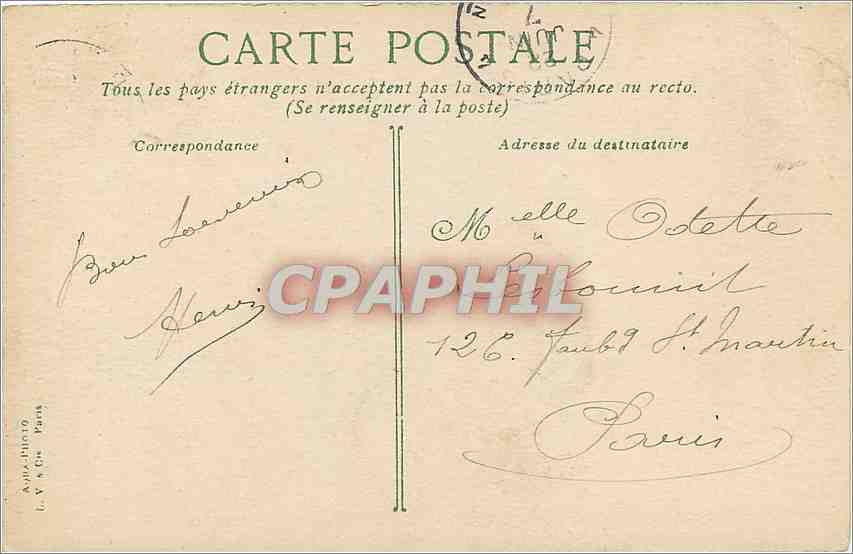 CARTE POSTALE
Tous les pays étrangers n'acceptent pas la correspondance au recto.
(Se renseigner à la poste)
Correspondance
Adresse du destinataire
Bon Souvenir
Henri
Melle Odette
126. Faubg St. Martin
Paris
CPAPHIL
AQUA-PHOTO
L. V & Cie Paris